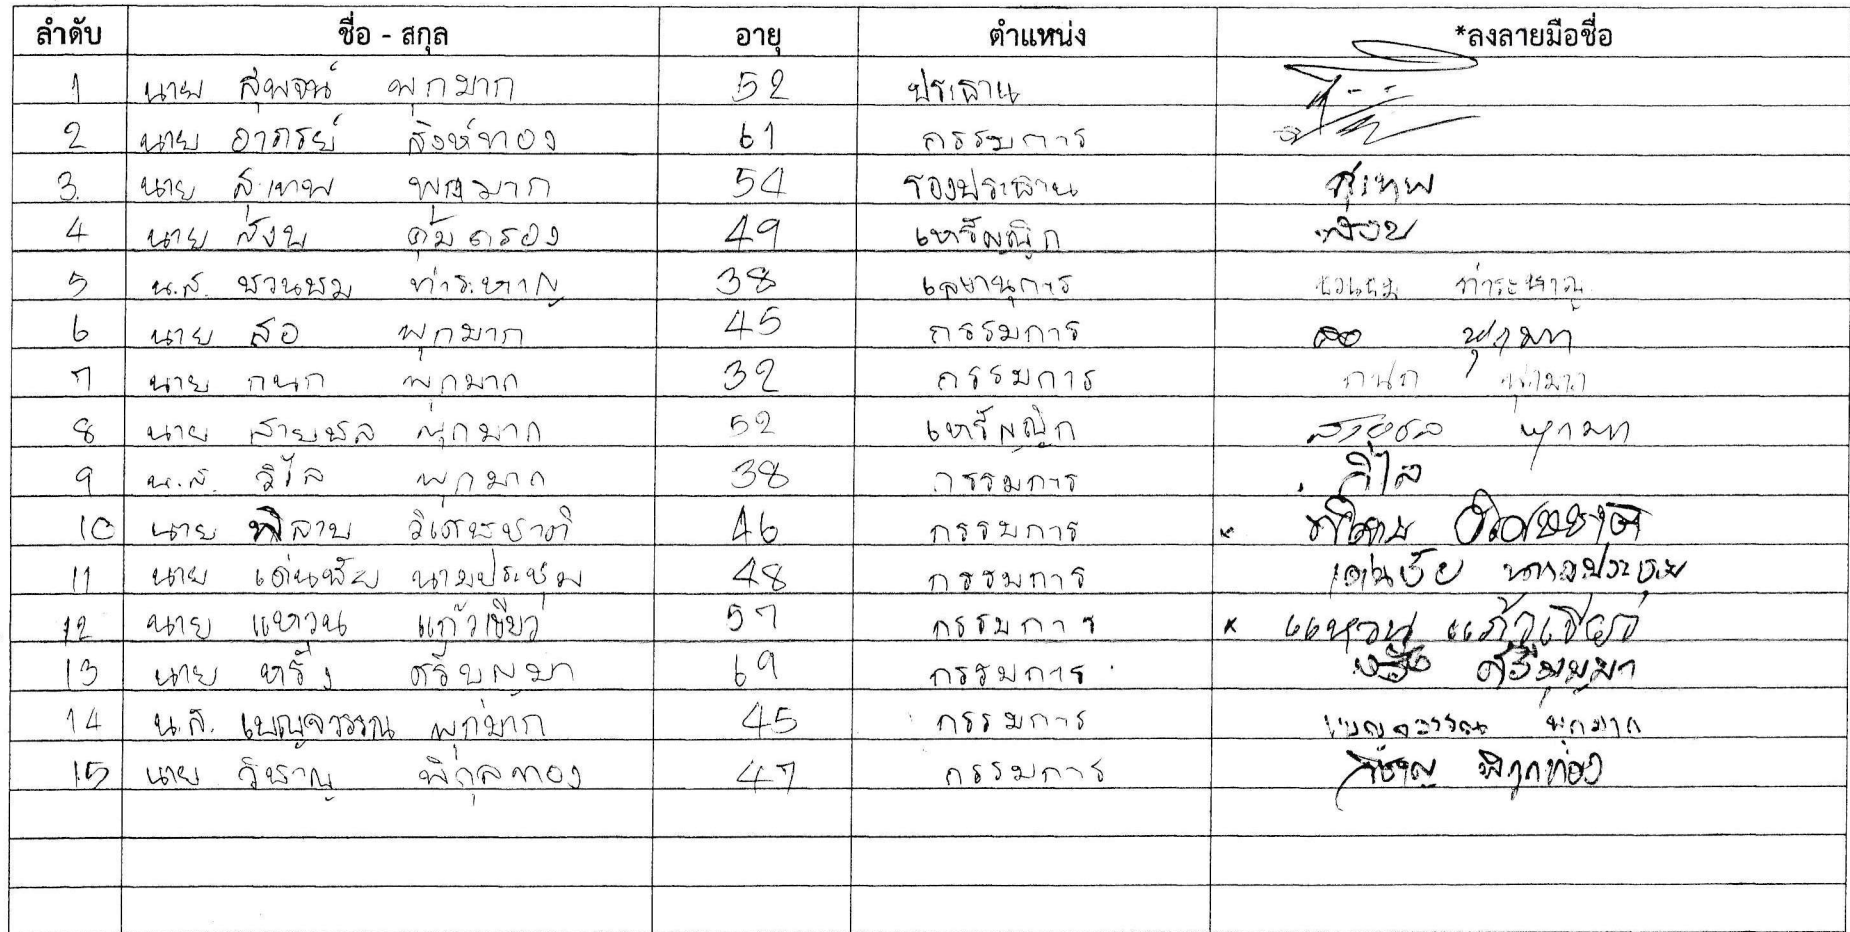 ลำดับ ชื่อ - สกุล อายุ ตำแหน่ง *ลงลายมือชื่อ
1 นาย สุพจน์ พุกมาก 52 ประธาน
2 นาย อาภรย์ สิงห์ทอง 61 กรรมการ
3. นาย สุเทพ พุกมาก 54 รองประธาน สุเทพ
4 นาย สงบ คุ้มครอง 49 เหรัญญิก สงบ
5 น.ส. ชวนชม ท่าระหาญ 38 เลขานุการ ชวนชม ท่าระหาญ
6 นาย สอ พุกมาก 45 กรรมการ สอ พุกมาก
7 นาย กนก พุกมาก 32 กรรมการ กนก พุกมาก
8 นาย สายชล พุกมาก 52 เหรัญญิก สายชล พุกมาก
9 น.ส. วิไล พุกมาก 38 กรรมการ วิไล
10 นาย พิลาบ วิเศษชาติ 46 กรรมการ x วิเศษชาติ
11 นาย เด่นชัย นามประชุม 48 กรรมการ เด่นชัย นามประชุม
12 นาย แหวน แก้วเขียว 57 กรรมการ x แหวน แก้วเขียว
13 นาย หรั่ง ศรีบุญมา 69 กรรมการ หรั่ง ศรีบุญมา
14 น.ส. เบญจวรรณ พุกมาก 45 กรรมการ เบญจวรรณ พุกมาก
15 นาย วิชาญ พิกุลทอง 47 กรรมการ วิชาญ พิกุลทอง